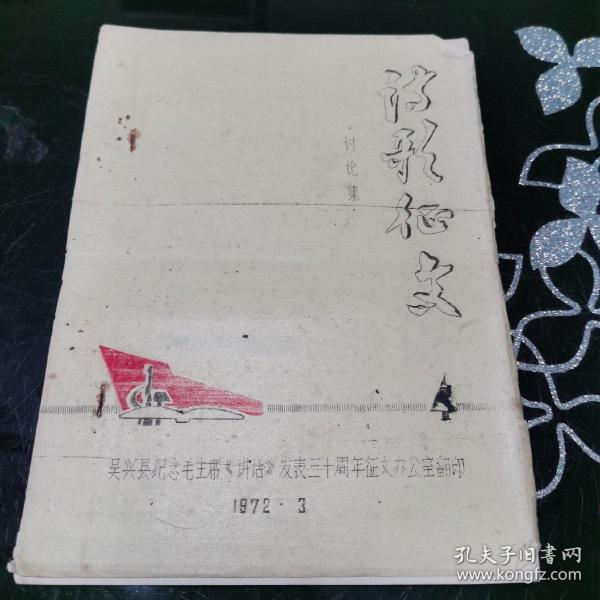 诗歌征文
讨论集
吴兴县纪念毛主席《讲话》发表三十周年征文办公室翻印
1972·3
孔夫子旧书网
www.kongfz.com